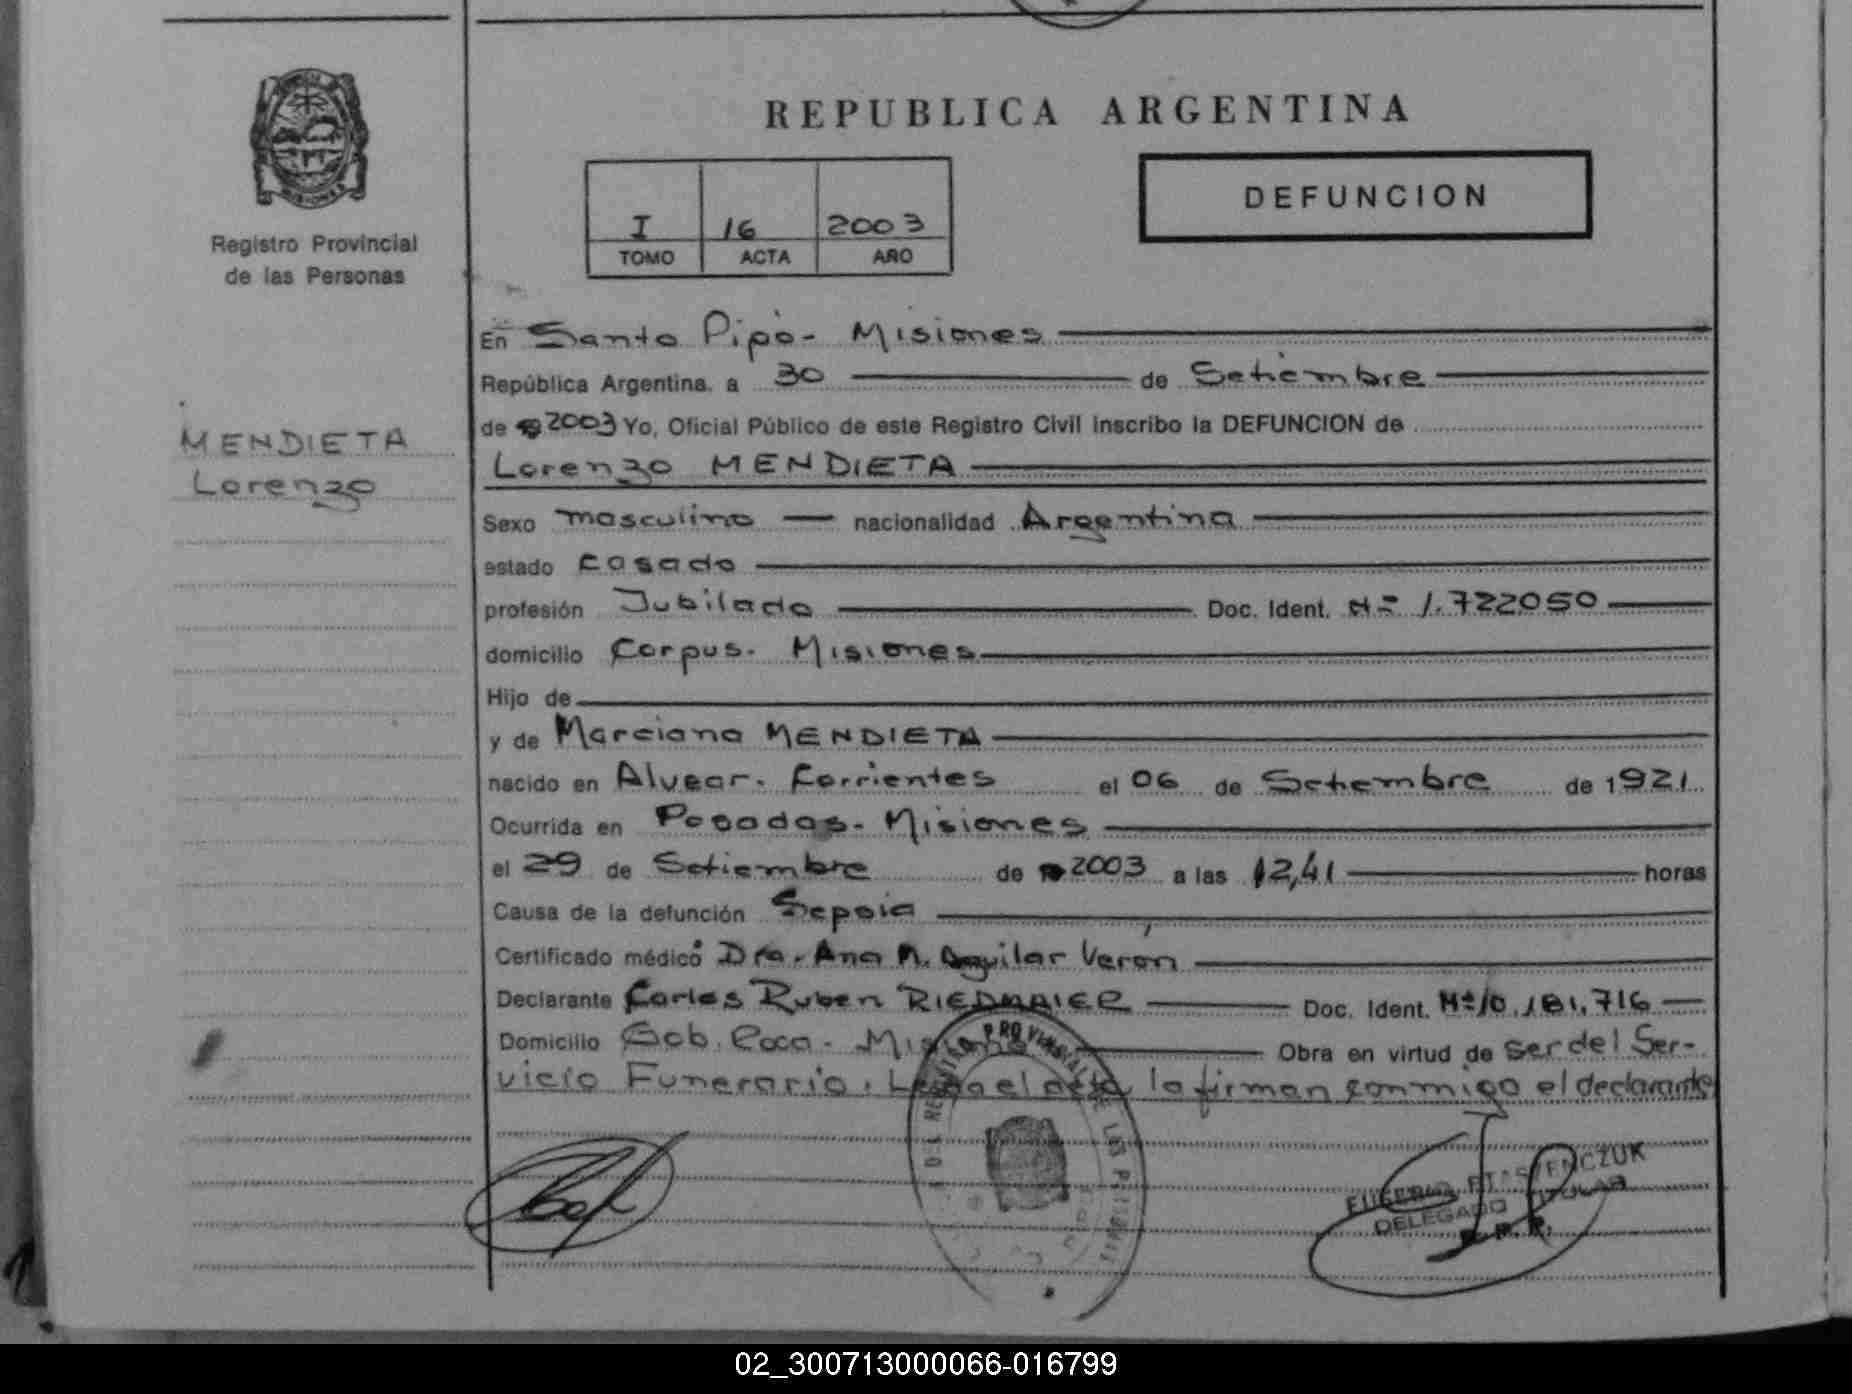 REPUBLICA ARGENTINA
DEFUNCION
I 16 2003
TOMO ACTA AÑO
MISIONES
Registro Provincial
de las Personas
MENDIETA
Lorenzo
En Santo Pipó - Misiones
República Argentina, a 30 de Setiembre
de 2003 Yo, Oficial Público de este Registro Civil inscribo la DEFUNCION de
Lorenzo MENDIETA
Sexo masculino nacionalidad Argentina
estado Casado
profesión Jubilado Doc. Ident. Nº 1.722050
domicilio Corpus - Misiones
Hijo de
y de Marciana MENDIETA
nacido en Alvear - Corrientes el 06 de Setiembre de 1921
Ocurrida en Posadas - Misiones
el 29 de Setiembre de 2003 a las 12,41 horas
Causa de la defunción Sepsia
Certificado médico Dra. Ana M. Aguilar Verón
Declarante Carlos Ruben RIEDMAIER Doc. Ident. Nº 10.181.716
Domicilio Gob. Roca - Misiones Obra en virtud de ser del Ser-
vicio Funerario. Leída el acta, la firman conmigo el declarante
DELEGADO TITULAR
02_300713000066-016799